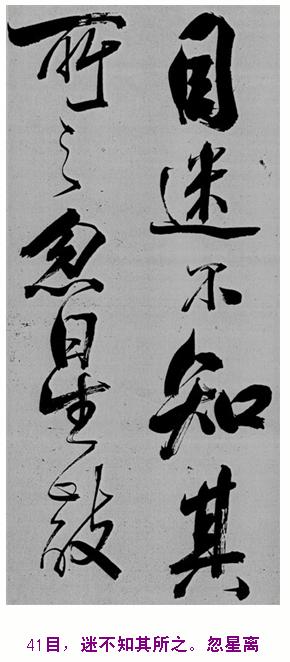 目迷不知其
所之忽星散
41目，迷不知其所之。忽星离